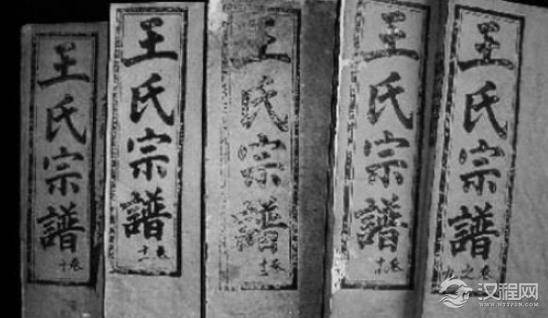 王氏宗譜
卷十
王氏宗譜
卷十一
王氏宗譜
王氏宗譜
王氏宗譜
卷之九
汉程网
WWW.HTTPCN.COM